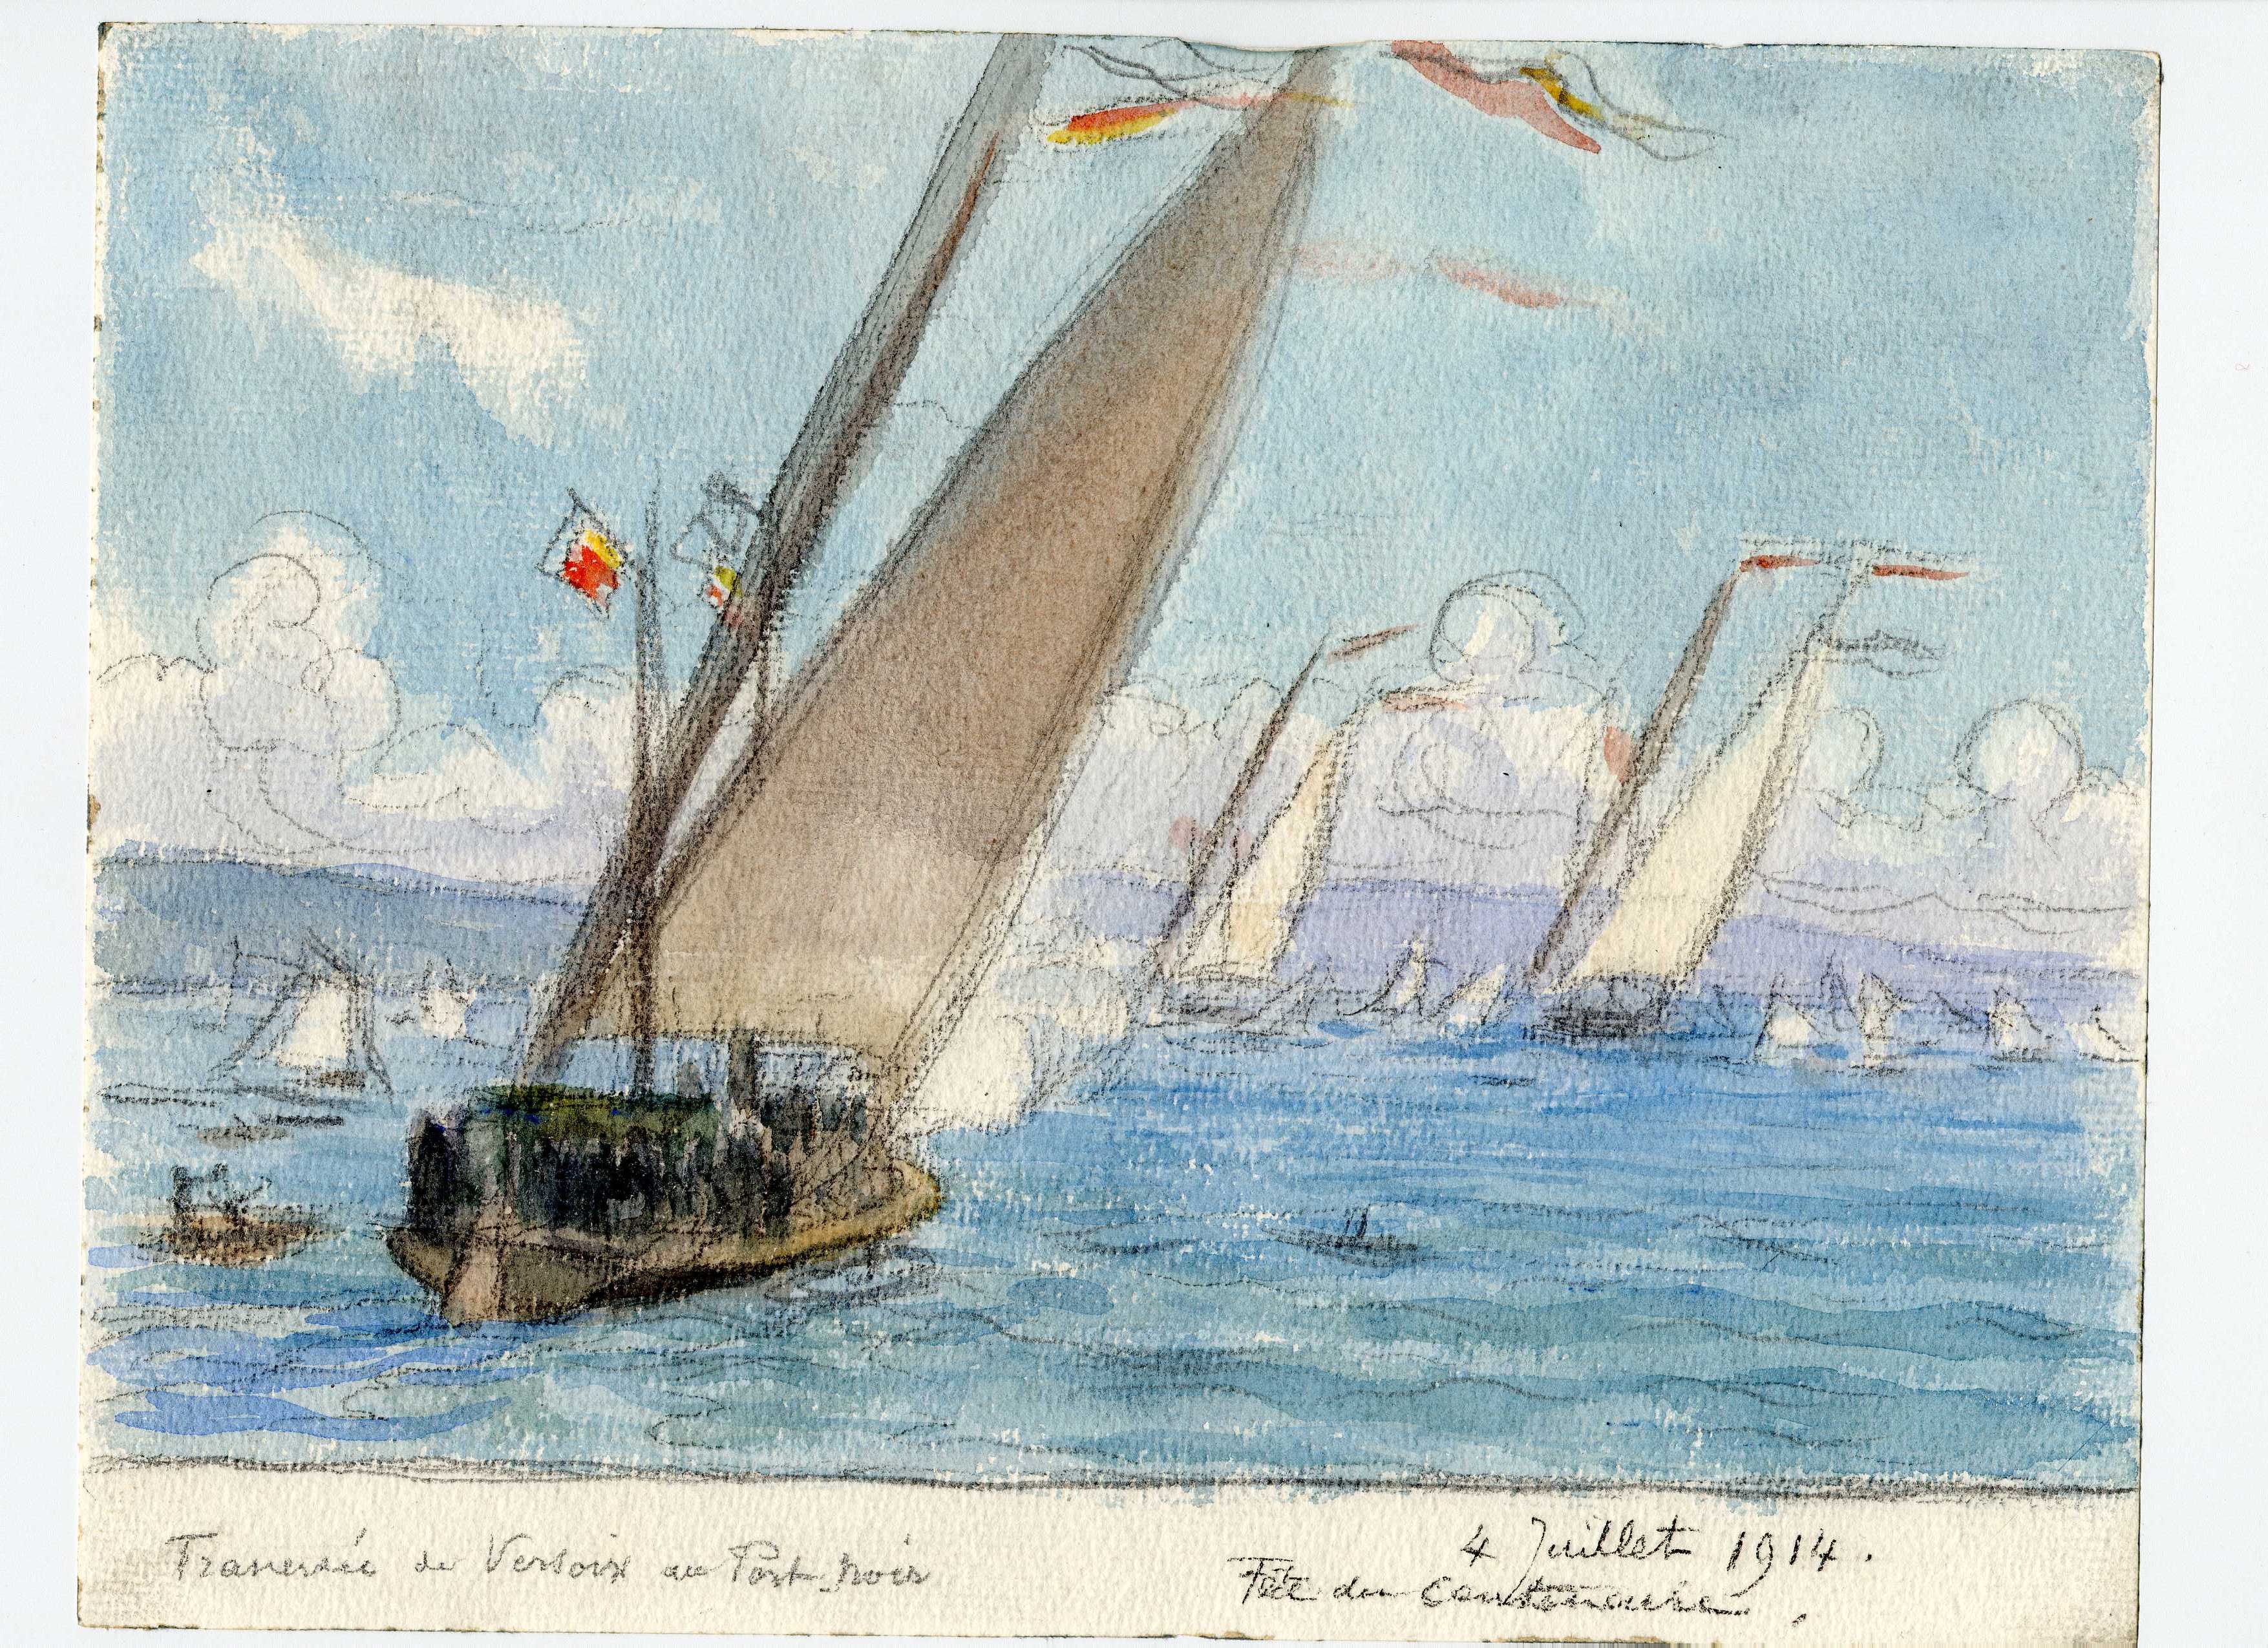 Traversée de Versoix au Port noir
4 Juillet 1914.
Fête du centenaire.